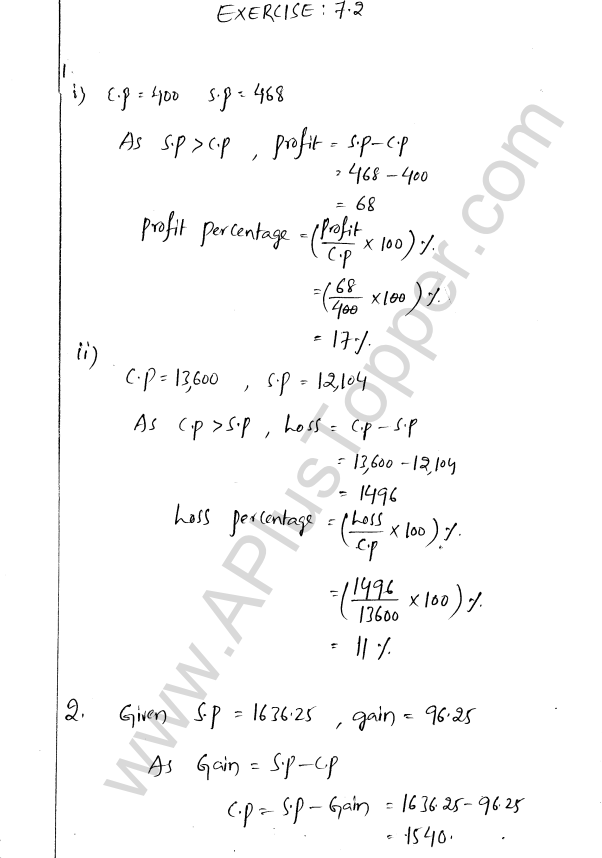 EXERCISE : 7.2
1.
i) C.p = 400 S.p = 468
As S.p > C.p , profit = S.p - C.p
= 468 - 400
= 68
profit percentage = (profit/C.p × 100) %
= (68/400 × 100) %
= 17 %
ii)
C.p = 13,600 , S.p = 12,104
As C.p > S.p , Loss = C.p - S.p
= 13,600 - 12,104
= 1496
Loss percentage = (Loss/C.p × 100) %.
= (1496/13600 × 100) %
= 11 %
2. Given S.p = 1636.25 , gain = 96.25
As Gain = S.p - C.p
C.p = S.p - Gain = 1636.25 - 96.25
= 1540.
www.APlusTopper.com